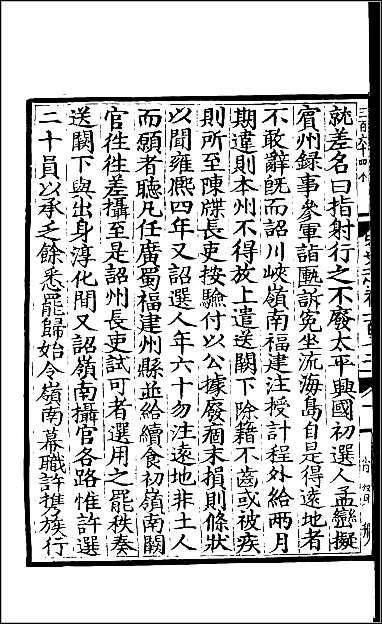 就差名曰指射行之不廢太平興國初選人孟巒擬
賓州録事參軍詣匭訴寃坐流海島自是得遠地者
不敢辭旣而詔川峽嶺南福建注授計程外給兩月
期違則本州不得放上遣送闕下除籍不齒或被疾
則所至陳牒長吏按驗付以公據廢痼末損則條狀
以聞雍熙四年又詔選人年六十勿注遠地非土人
而願者聽凡任廣蜀福建州縣並給續食初嶺南闕
官徃徃差攝至是詔州長吏試可者選用之罷秩奏
送闕下與出身淳化間又詔嶺南攝官各路惟許選
二十員以承乏餘悉罷歸始令嶺南幕職許擕族行